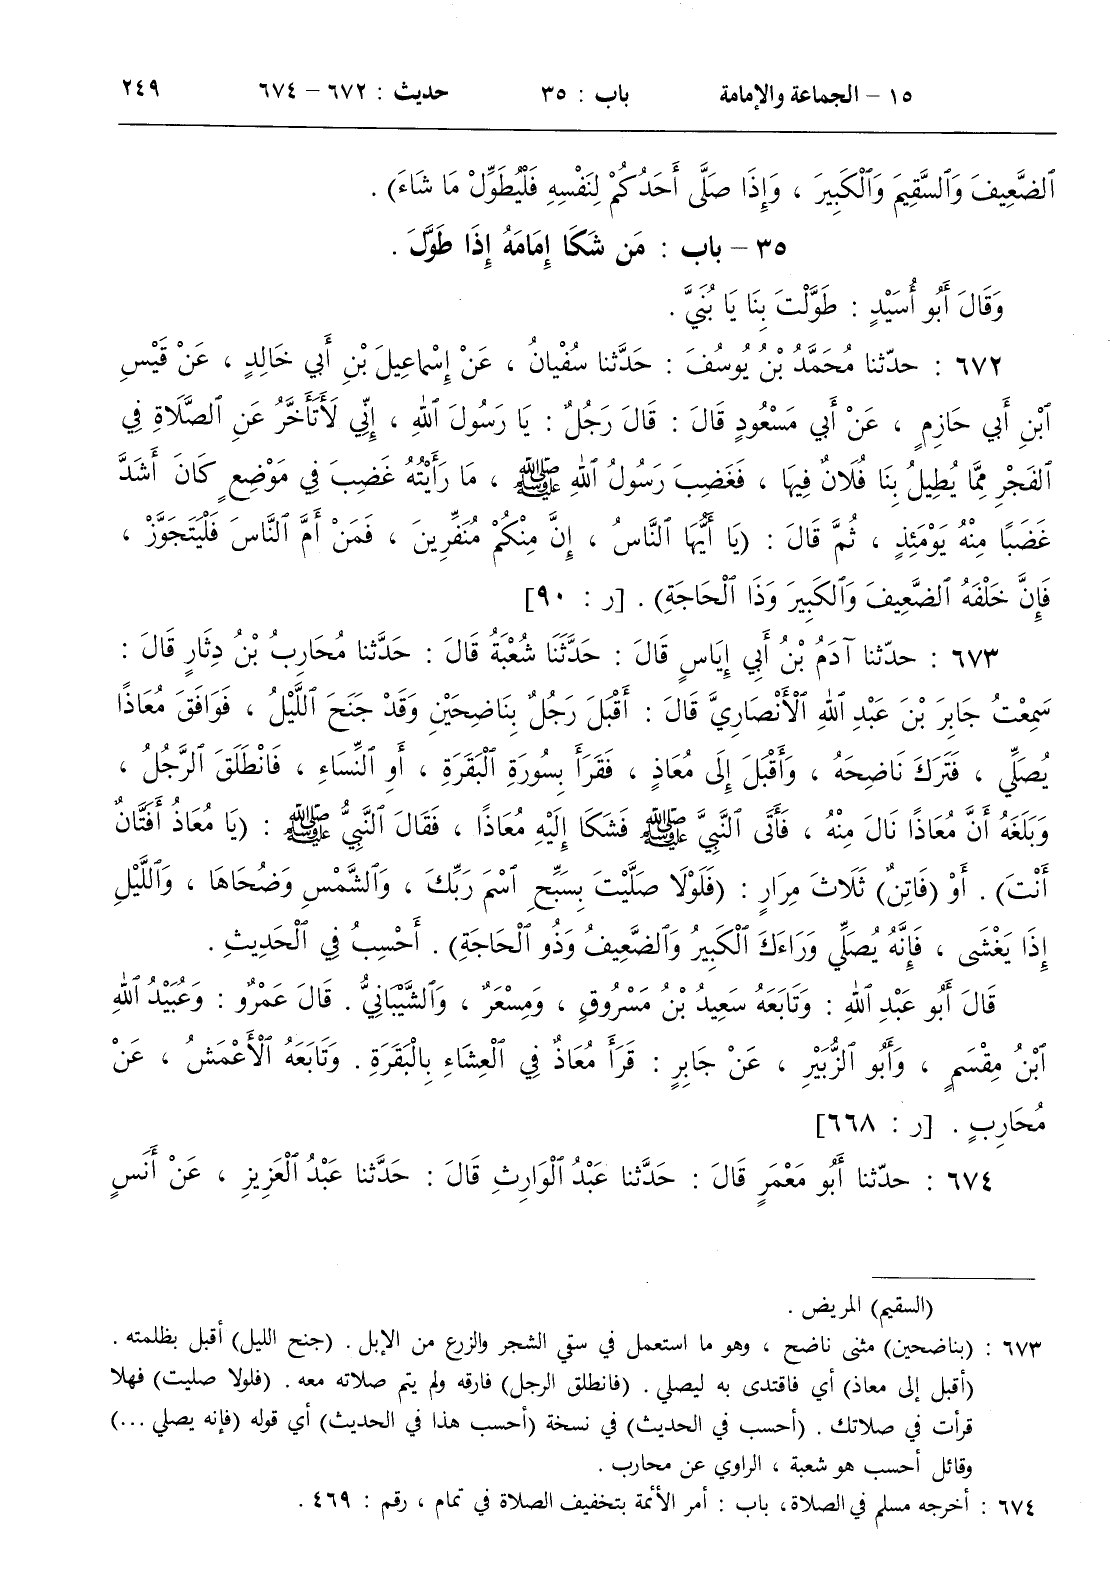 ١٥ – الجماعة والإمامة باب : ٣٥ حديث : ٦٧٢ – ٦٧٤ ٢٤٩
ٱلضَّعِيفَ وَٱلسَّقِيمَ وَٱلْكَبِيرَ ، وَإِذَا صَلَّى أَحَدُكُمْ لِنَفْسِهِ فَلْيُطَوِّلْ مَا شَاءَ) .
٣٥ – باب : مَن شَكَا إِمَامَهُ إِذَا طَوَّلَ .
وَقَالَ أَبُو أُسَيْدٍ : طَوَّلْتَ بِنَا يَا بُنَيَّ .
٦٧٢ : حدّثنا مُحَمَّدُ بْنُ يُوسُفَ : حَدَّثنا سُفْيانُ ، عَنْ إِسْماعِيلَ بْنِ أَبِي خَالِدٍ ، عَنْ قَيْسِ
ٱبْنِ أَبِي حَازِمٍ ، عَنْ أَبِي مَسْعُودٍ قَالَ : قَالَ رَجُلٌ : يَا رَسُولَ ٱللهِ ، إِنِّي لَأَتَأَخَّرُ عَنِ ٱلصَّلَاةِ فِي
ٱلفَجْرِ مِمَّا يُطِيلُ بِنَا فُلَانٌ فِيهَا ، فَغَضِبَ رَسُولُ ٱللهِ ﷺ ، مَا رَأَيْتُهُ غَضِبَ فِي مَوْضِعٍ كَانَ أَشَدَّ
غَضَبًا مِنْهُ يَوْمَئِذٍ ، ثُمَّ قَالَ : (يَا أَيُّهَا ٱلنَّاسُ ، إِنَّ مِنْكُمْ مُنَفِّرِينَ ، فَمَنْ أَمَّ ٱلنَّاسَ فَلْيَتَجَوَّزْ ،
فَإِنَّ خَلْفَهُ ٱلضَّعِيفَ وَٱلكَبِيرَ وَذَا ٱلْحَاجَةِ) . [ر : ٩٠]
٦٧٣ : حدّثنا آدَمُ بْنُ أَبِي إِيَاسٍ قَالَ : حَدَّثَنَا شُعْبَةُ قَالَ : حَدَّثنا مُحَارِبُ بْنُ دِثَارٍ قَالَ :
سَمِعْتُ جَابِرَ بْنَ عَبْدِ ٱللهِ ٱلْأَنْصَارِيَّ قَالَ : أَقْبَلَ رَجُلٌ بِنَاضِحَيْنِ وَقَدْ جَنَحَ ٱللَّيْلُ ، فَوَافَقَ مُعَاذًا
يُصَلِّي ، فَتَرَكَ نَاضِحَهُ ، وَأَقْبَلَ إِلَى مُعَاذٍ ، فَقَرَأَ بِسُورَةِ ٱلْبَقَرَةِ ، أَوِ ٱلنِّسَاءِ ، فَانْطَلَقَ ٱلرَّجُلُ ،
وَبَلَغَهُ أَنَّ مُعَاذًا نَالَ مِنْهُ ، فَأَتَى ٱلنَّبِيَّ ﷺ فَشَكَا إِلَيْهِ مُعَاذًا ، فَقَالَ ٱلنَّبِيُّ ﷺ : (يَا مُعَاذُ أَفَتَّانٌ
أَنْتَ) . أَوْ (فَاتِنٌ) ثَلَاثَ مِرَارٍ : (فَلَوْلَا صَلَّيْتَ بِسَبِّحِ ٱسْمَ رَبِّكَ ، وَٱلشَّمْسِ وَضُحَاهَا ، وَٱللَّيْلِ
إِذَا يَغْشَى ، فَإِنَّهُ يُصَلِّي وَرَاءَكَ ٱلْكَبِيرُ وَٱلضَّعِيفُ وَذُو ٱلْحَاجَةِ) . أَحْسِبُ فِي ٱلْحَدِيثِ .
قَالَ أَبُو عَبْدِ ٱللهِ : وَتَابَعَهُ سَعِيدُ بْنُ مَسْرُوقٍ ، وَمِسْعَرٌ ، وَٱلشَّيْبَانِيُّ . قَالَ عَمْرٌو : وَعُبَيْدُ ٱللهِ
ٱبْنُ مِقْسَمٍ ، وَأَبُو ٱلزُّبَيْرِ ، عَنْ جَابِرٍ : قَرَأَ مُعَاذٌ فِي ٱلْعِشَاءِ بِالْبَقَرَةِ . وَتَابَعَهُ ٱلْأَعْمَشُ ، عَنْ
مُحَارِبٍ . [ر : ٦٦٨]
٦٧٤ : حدّثنا أَبُو مَعْمَرٍ قَالَ : حَدَّثنا عَبْدُ ٱلْوَارِثِ قَالَ : حَدَّثنا عَبْدُ ٱلْعَزِيزِ ، عَنْ أَنَسٍ
(السقيم) المريض .
٦٧٣ : (بناضحين) مثنى ناضح ، وهو ما استعمل في سقي الشجر والزرع من الإبل . (جنح الليل) أقبل بظلمته .
(أقبل إلى معاذ) أي فاقتدى به ليصلي . (فانطلق الرجل) فارقه ولم يتم صلاته معه . (فلولا صليت) فهلا
قرأت في صلاتك . (أحسب في الحديث) في نسخة (أحسب هذا في الحديث) أي قوله (فإنه يصلي ...)
وقائل أحسب هو شعبة ، الراوي عن محارب .
٦٧٤ : أخرجه مسلم في الصلاة ، باب : أمر الأئمة بتخفيف الصلاة في تمام ، رقم : ٤٦٩ .